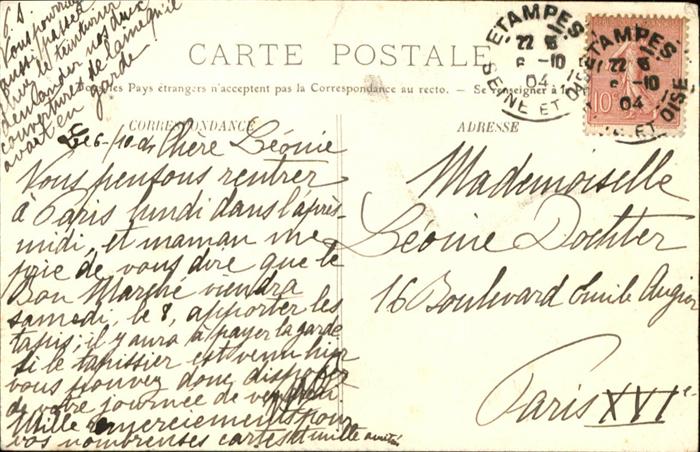 CARTE POSTALE
Tous les Pays étrangers n'acceptent pas la Correspondance au recto. — Se renseigner à la
CORRESPONDANCE
ADRESSE
ETAMPES
22 6
6 -10
04
SEINE ET OISE
ETAMPES
22 6
-10
04
ET OISE
10c
P.S.
Vous pourriez
aussi passer
chez le teinturier
demander nos deux
couvertures de laine qu'il
avait en garde
Le 6-/10-04 Chère Léonie
Nous pensons rentrer
à Paris lundi dans l'après-
midi, et maman me
prie de vous dire que le
Bon Marché viendra
samedi, le 8, apporter les
tapis; il y aura à payer la garde
Si le tapissier est venu hier
vous pouvez donc disposer
de votre journée de vendredi
Mille remerciements pour
vos nombreuses cartes et mille amitiés
Mademoiselle
Léonie Dochter
16 Boulevard Emile Augier
Paris XVIe